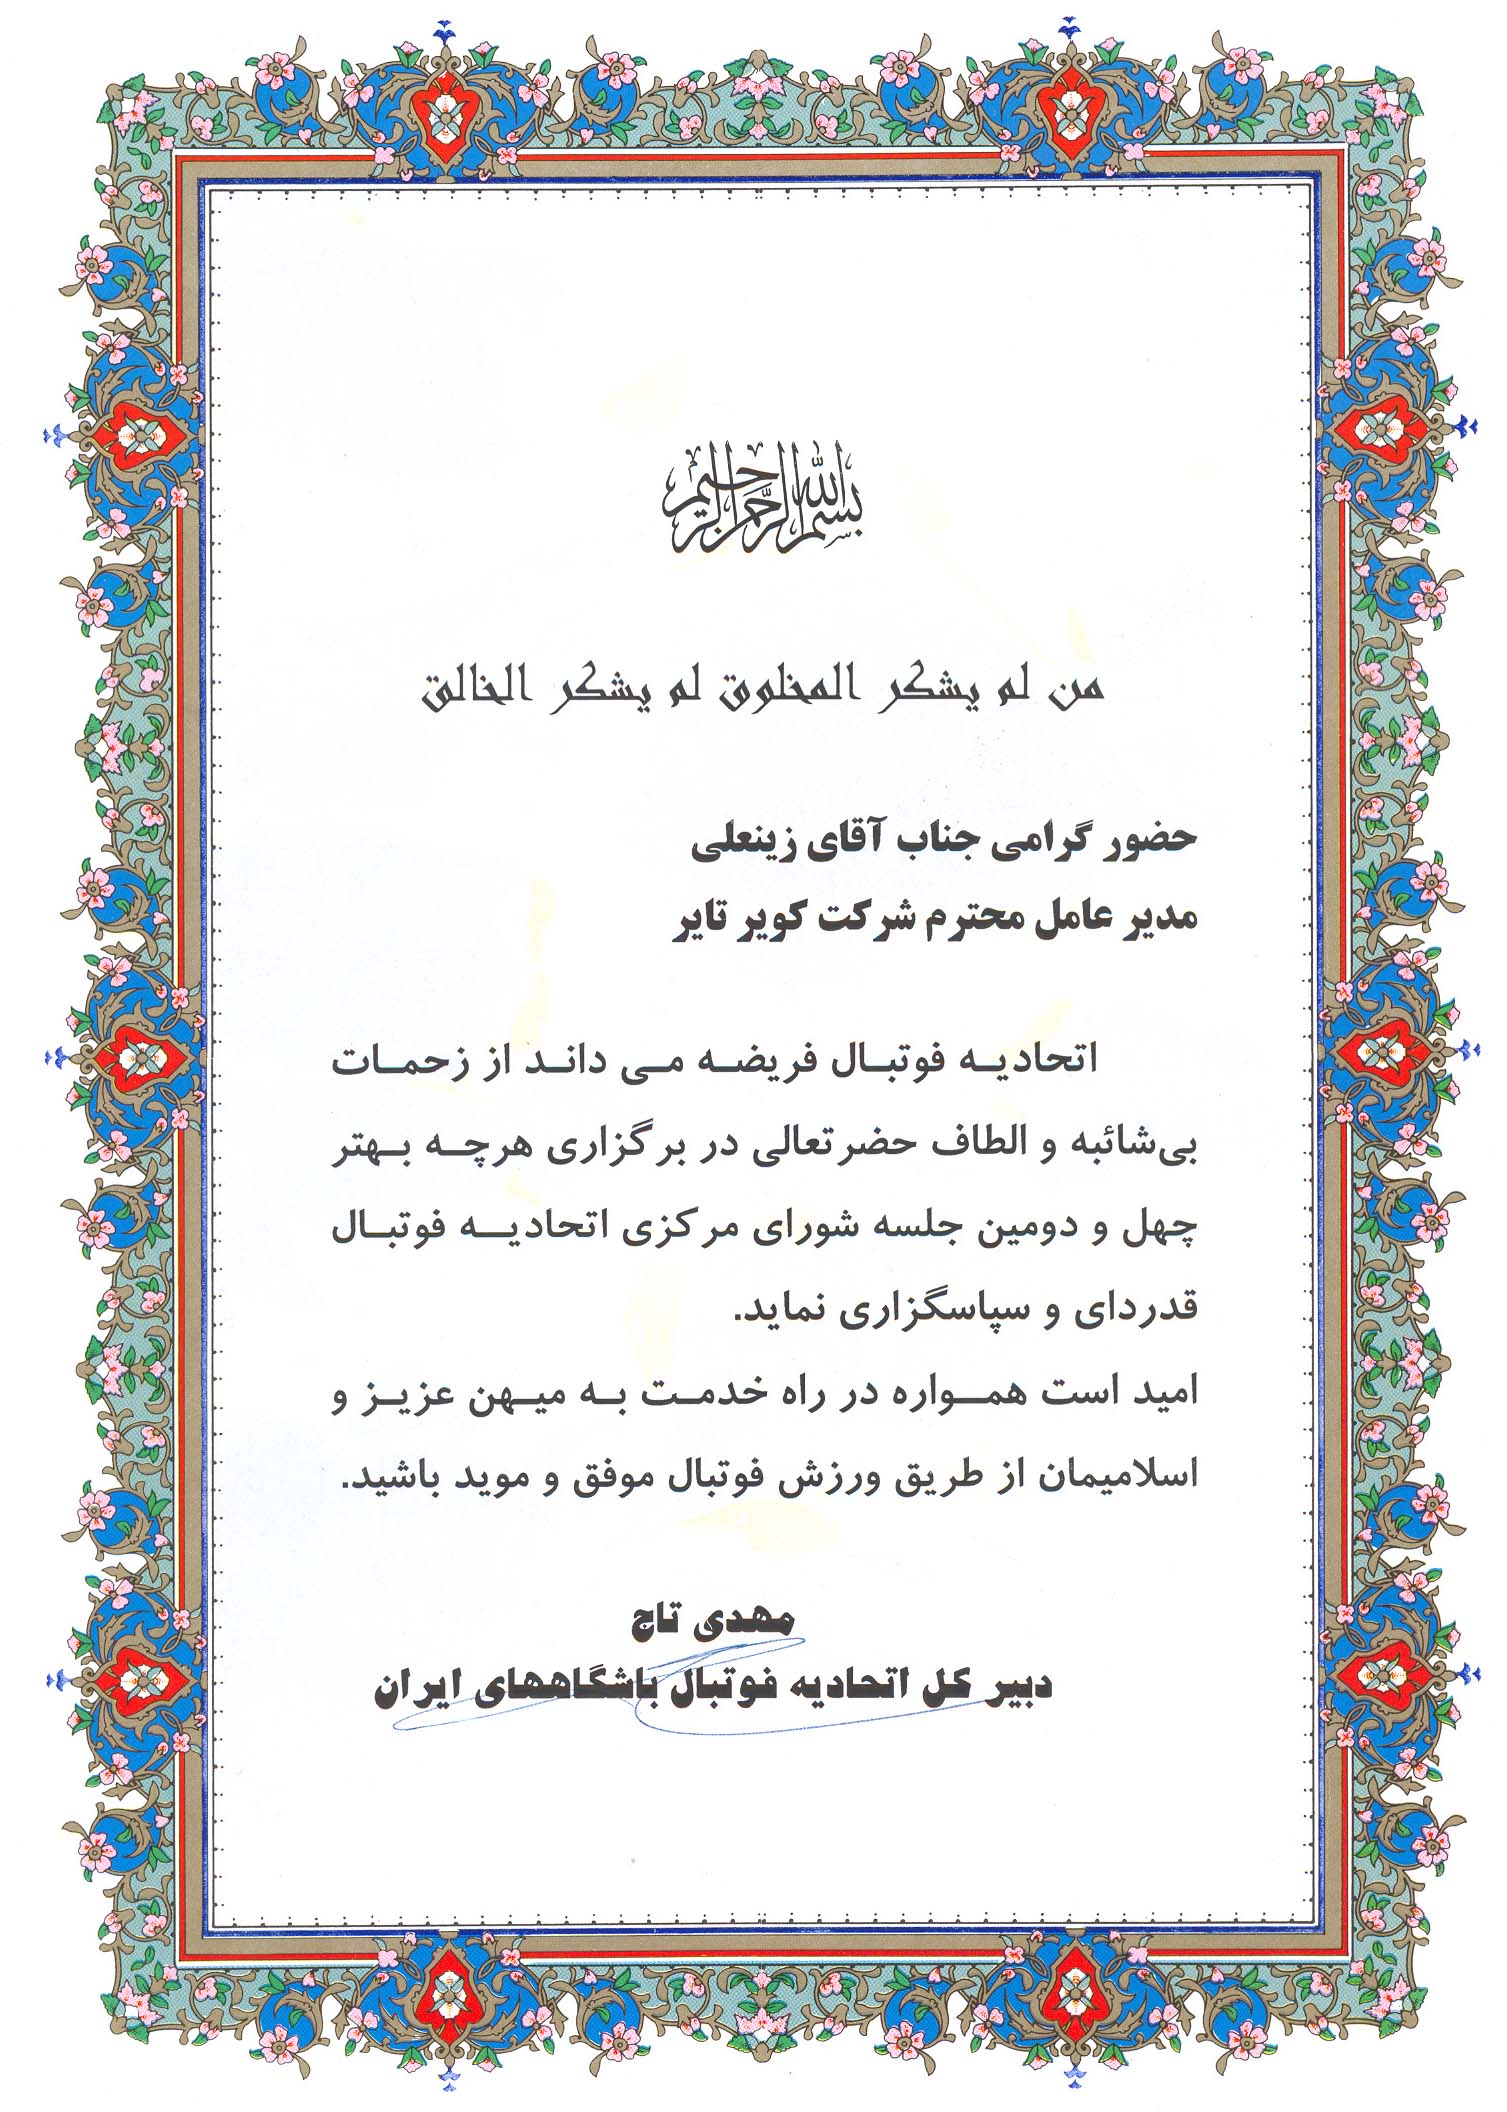 بسم الله الرحمن الرحیم
من لم یشکر المخلوق لم یشکر الخالق
حضور گرامی جناب آقای زینعلی
مدیر عامل محترم شرکت کویر تایر
اتحادیه فوتبال فریضه می داند از زحمات
بی‌شائبه و الطاف حضرتعالی در برگزاری هرچه بهتر
چهل و دومین جلسه شورای مرکزی اتحادیه فوتبال
قدردای و سپاسگزاری نماید.
امید است همواره در راه خدمت به میهن عزیز و
اسلامیمان از طریق ورزش فوتبال موفق و موید باشید.
مهدی تاج
دبیر کل اتحادیه فوتبال باشگاههای ایران